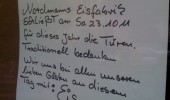 Nordmanns Eisfabrik
schließt am So 23.10.11
für dieses Jahr die Türen.
Traditionell bedanken
Wir uns bei allen unseren
lieben Gästen an diesem
Tag mit: Eis